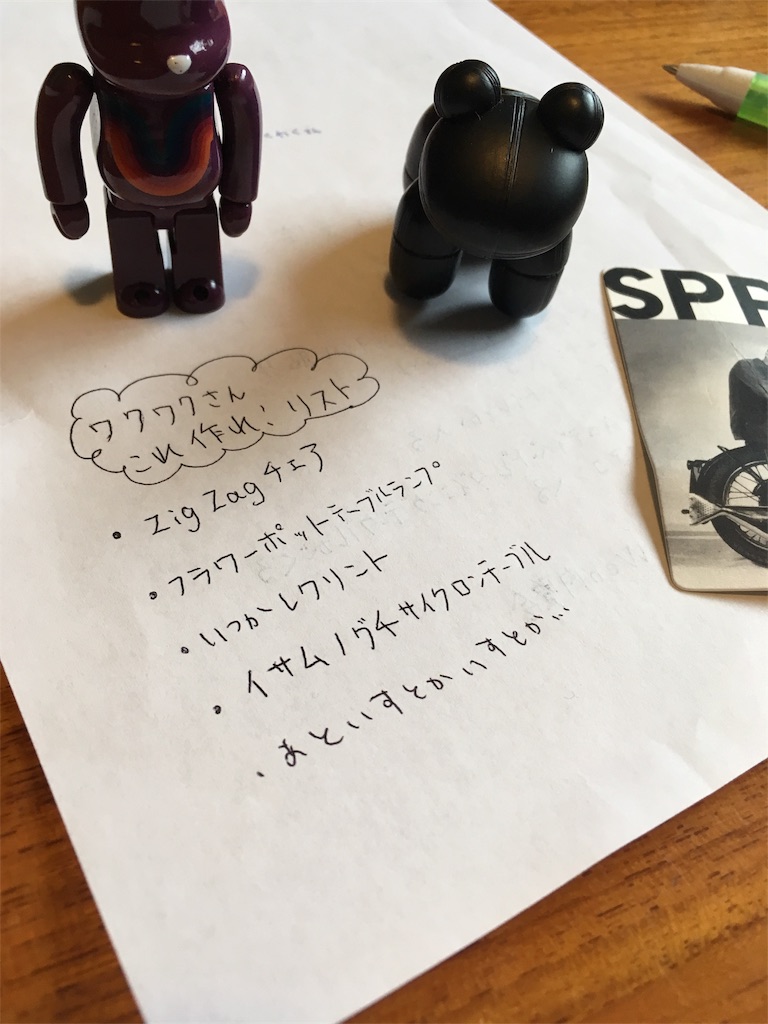 ワクワクさん
これ作れ!リスト
・Zig Zagチェア
・フラワーポットテーブルランプ
・いつかしクリント
・イサムノグチサイクロンテーブル
・あといすとかいすとか...
SPR